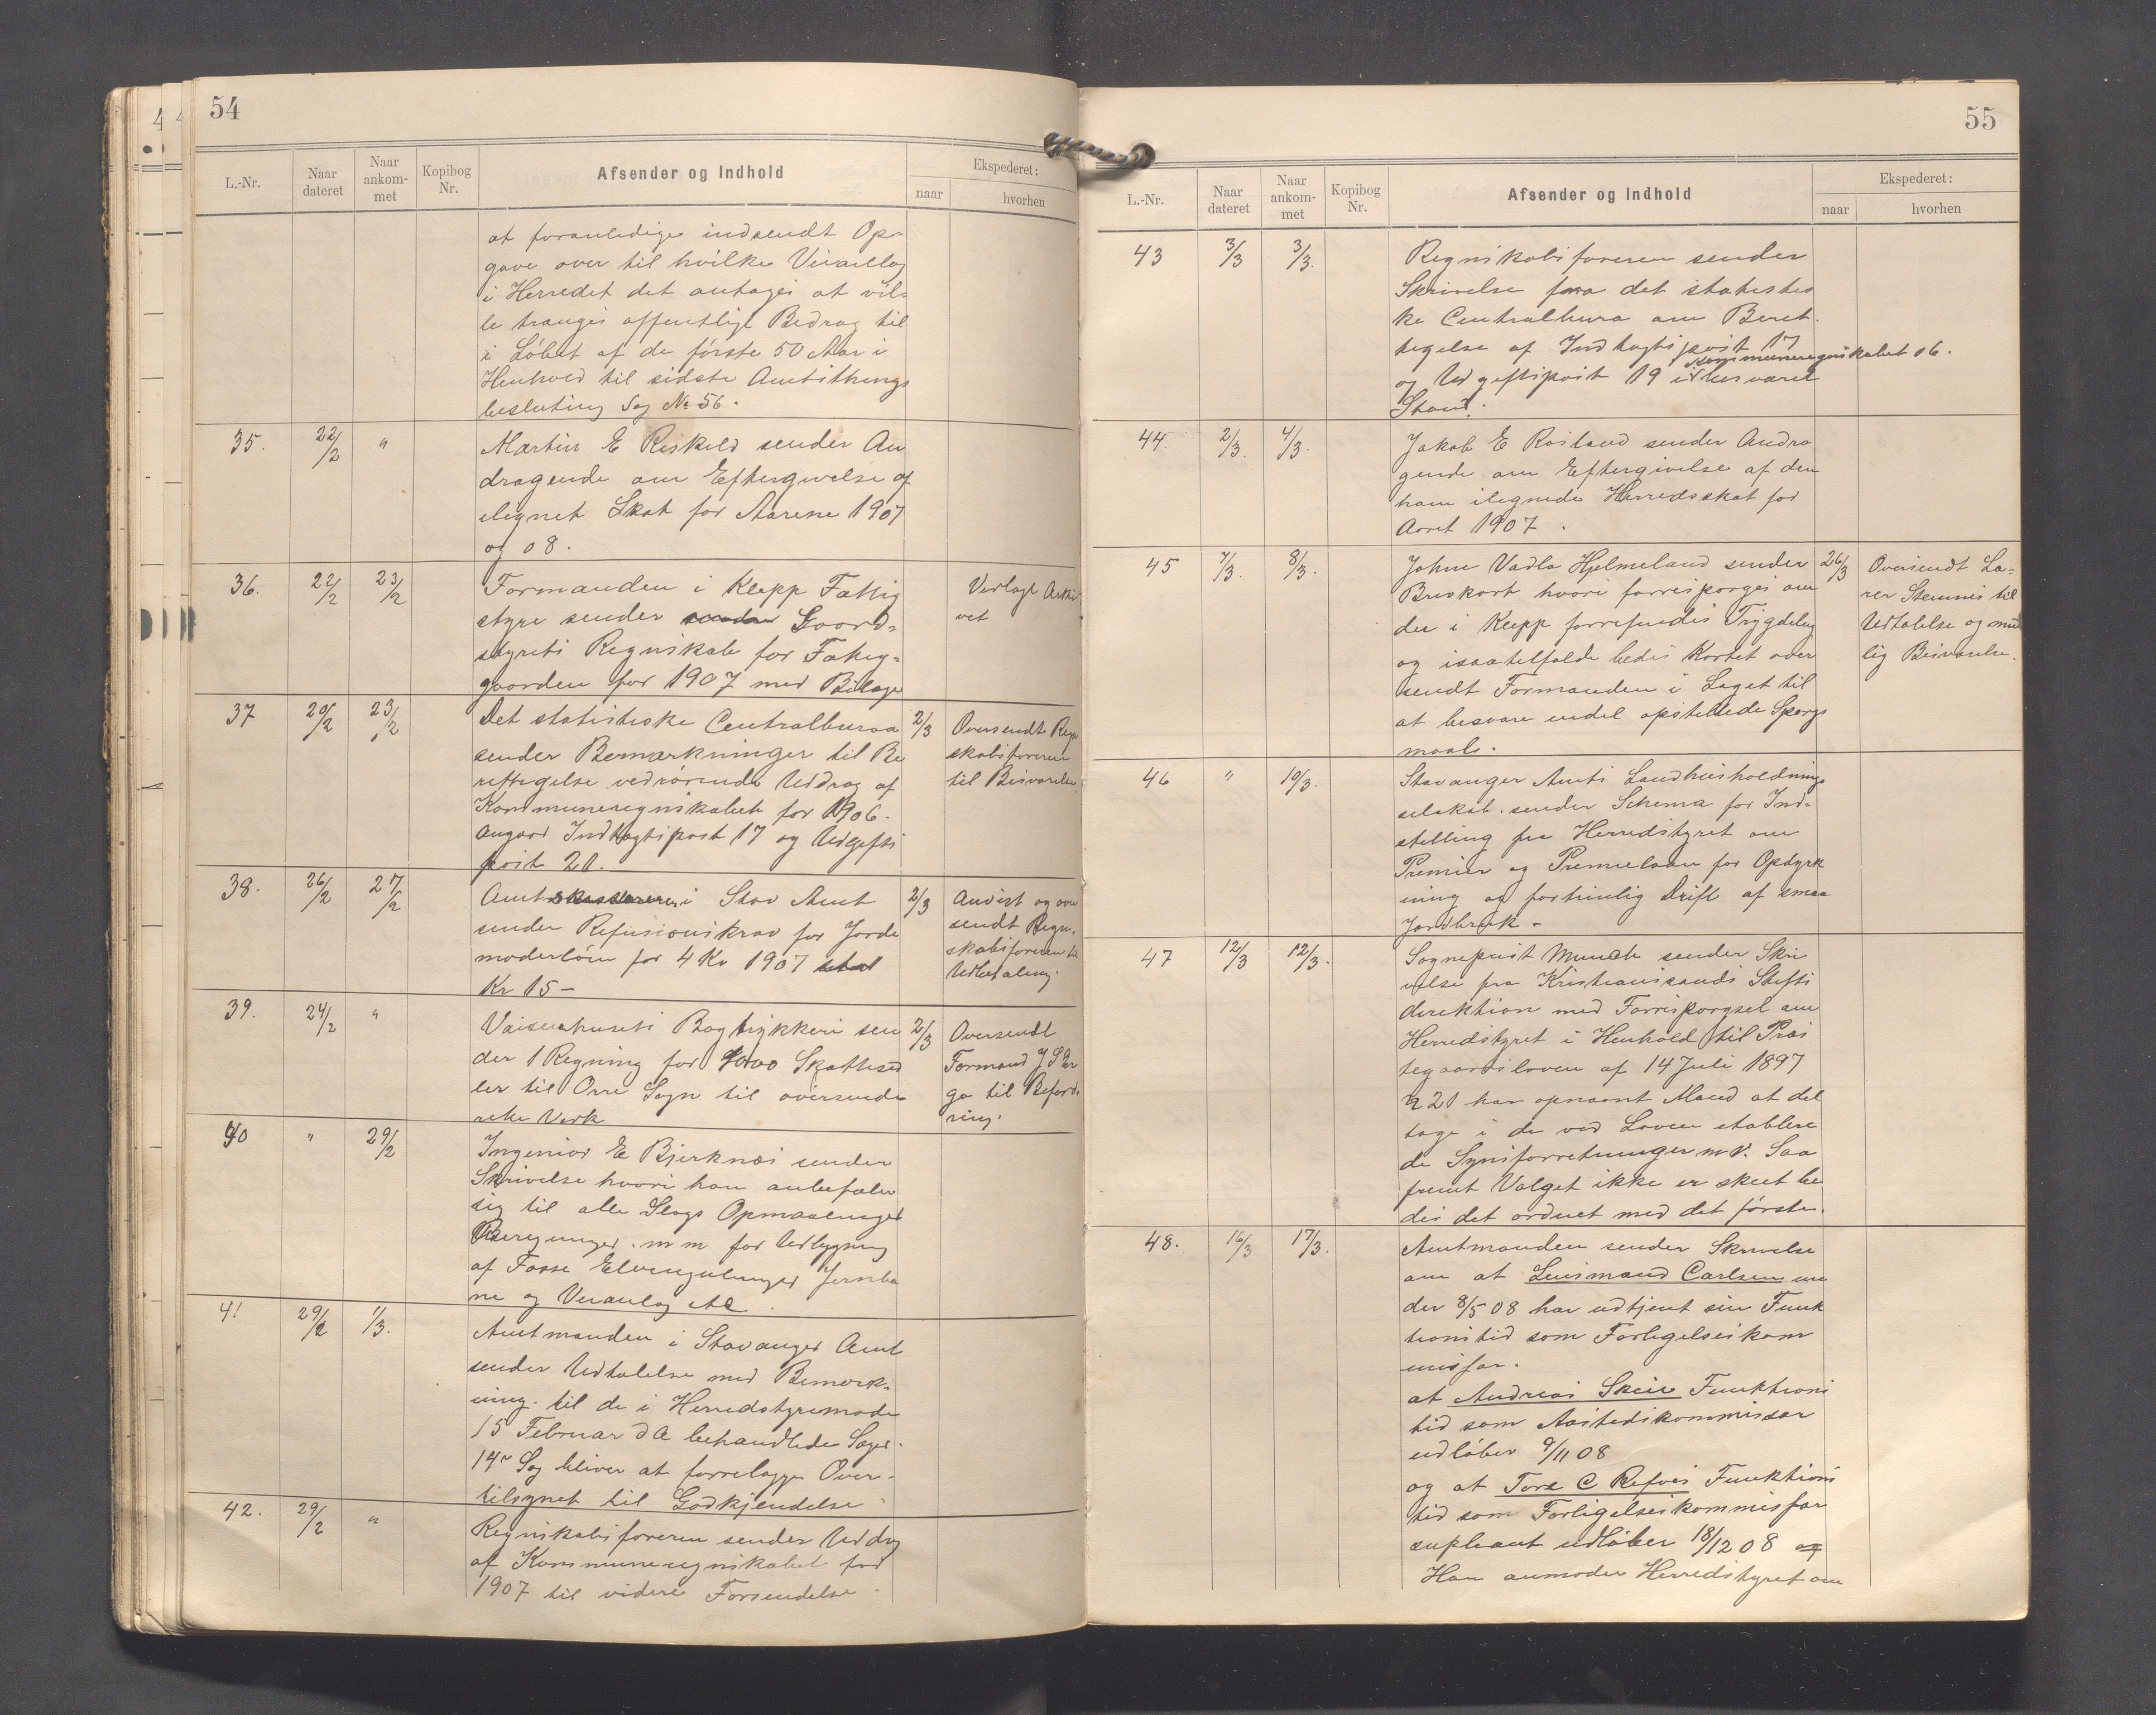 54
L.-Nr. Naar dateret Naar ankommet Kopibog Nr. Afsender og Indhold Ekspederet: naar hvorhen
at foranledige indsendt Op-
gave over til hvilke Veianlæg
i Herredet det antages at vil-
le trænges offentlige Bidrag til
i Löbet af de förste 50 Aar i
Henhold til sidste Amtsthings
beslutning Sag No 56.
35. 22/2 " Martin E Riskeld sender An
dragende om Eftergivelse af
ilignet Skat for Aarene 1907
og 08.
36. 22/2 23/2 Formanden i Klepp Fattig Vedlagt Arki
styre sender Gaard- vet
styrets Regnskab for Fattig-
gaarden for 1907 med Bilage
37 20/2 23/2 Det statistiske Centralburaa 2/3 Oversendt Regn
sender Bemærkninger til Be skabsföreren
rettigelse vedrörende Uddrag af til Besvarelse
Kommuneregnskabet for 1906.
angaar Indtægtspost 17 og Udgifts
post 21.
38. 26/2 27/2 Amtskassereren i Stav Amt 2/3 Anvist og over
sender Refusionskrav for Jorde sendt Regn.
moderlön for 4 Kv 1907 skabsföreren til
Kr 15 – Udbetaling.
39. 24/2 " Vaisenhusets Bogtrykkeri sen 2/3 Oversendt
der 1 Regning for 1000 Skattesed Formand J S
ler til Orre Sogn til oversende ga til Beford
rette Verk ring.
40 " 29/2 Ingeniör E Bjerknæs sender
Skrivelse hvori han anbefaler
sig til alle Slags Opmaalinger
Beregninger m m for Udbygning
af Fosse Elvereguleringer Jernba
ne og Veianlæg
41 29/2 1/3. Amtmanden i Stavanger Amt
sender Udtalelse med Bemærk-
ning til de i Herredstyremöde
15 Februar d A behandlede Sager.
14 Sag bliver at forrelægge Over-
tilsynet til Godkjendelse
42. 29/2 " Regnskabsföreren sender Uddrag
af Kommuneregnskabet for
1907 til videre Forsendelse.
55
L.-Nr. Naar dateret Naar ankommet Kopibog Nr. Afsender og Indhold Ekspederet: naar hvorhen
43 3/3 3/3. Regnskabsföreren sender
Skrivelse fra det statistis
ke Centralbura om Beret-
tigelse af Indtægtspost 17
kommuneregnskabet 06.
og Udgiftspost 19 i besvaret
Stand.
44. 2/3. 4/3. Jakob E Rosland sender Andra
gende om Eftergivelse af den
ham ilignede Herredsskat for
Aaret 1907.
45 7/3. 8/3. John Vadla Hjelmeland sender 26/3 Oversendt Læ-
Brevkort hvori forrespörges om rer Stennes til
der i Klepp forrefindes Trygdelag Udtalelse og mu
og isaatilfælde bedes Kortet over lig Besvarelse.
sendt Formanden i Laget til
at besvare endel opstillede Spörgs
maale.
46 " 10/3. Stavanger Amts Landhusholdnings
selskab sender Schema for Ind-
stilling fra Herredstyret om
Premier og Premielaan for Opdyrk
ning og fortrinlig Drift af smaa
Jordbruk –
47 12/3 12/3. Sogneprest Munch sender Skri
velse fra Kristiansands Stifts
direktion med Forrespörgsel om
Herredstyret i Henhold til Præs
tegaardsloven af 14 Juli 1897
§ 21 har opnævnt Mænd at del
tage i de ved Loven etablere
de Synsforretninger m v. Saa
fremt Valget ikke er skeet be
des det ordnet med det förste.
48. 16/3 17/3. Amtmanden sender Skrivelse
om at Lensmand Carlsen un
der 8/5 08 har udtjent sin Funk
tionstid som Forligelseskom
missær.
at Andreas Skeie Funktions
tid som Aastedskommissær
udlöber 9/11 08
og at Tore C Refves Funktions
tid som Forligelseskommissær
supleant udlöber 18/12 08 og
Han anmoder Herredstyret om